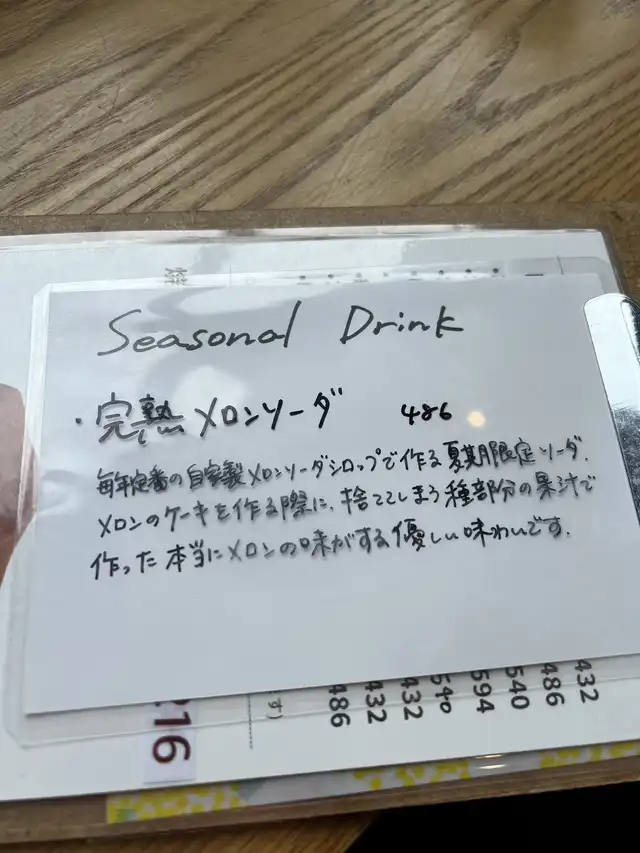 Seasonal Drink
・完熟メロンソーダ 486
毎年定番の自家製メロンソーダシロップで作る夏期限定ソーダ.
メロンのケーキを作る際に、捨ててしまう種部分の果汁で
作った本当にメロンの味がする優しい味わいです.
す)
486
432
432
540
594
540
486
432
216